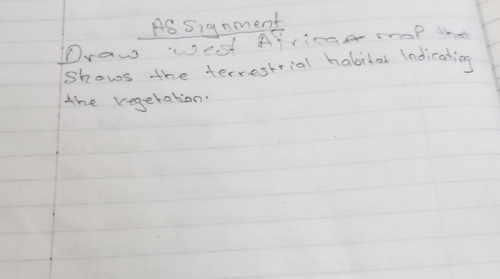 Assignment
Draw west African map that
Shows the terrestrial habitat Indicating
the vegetation.